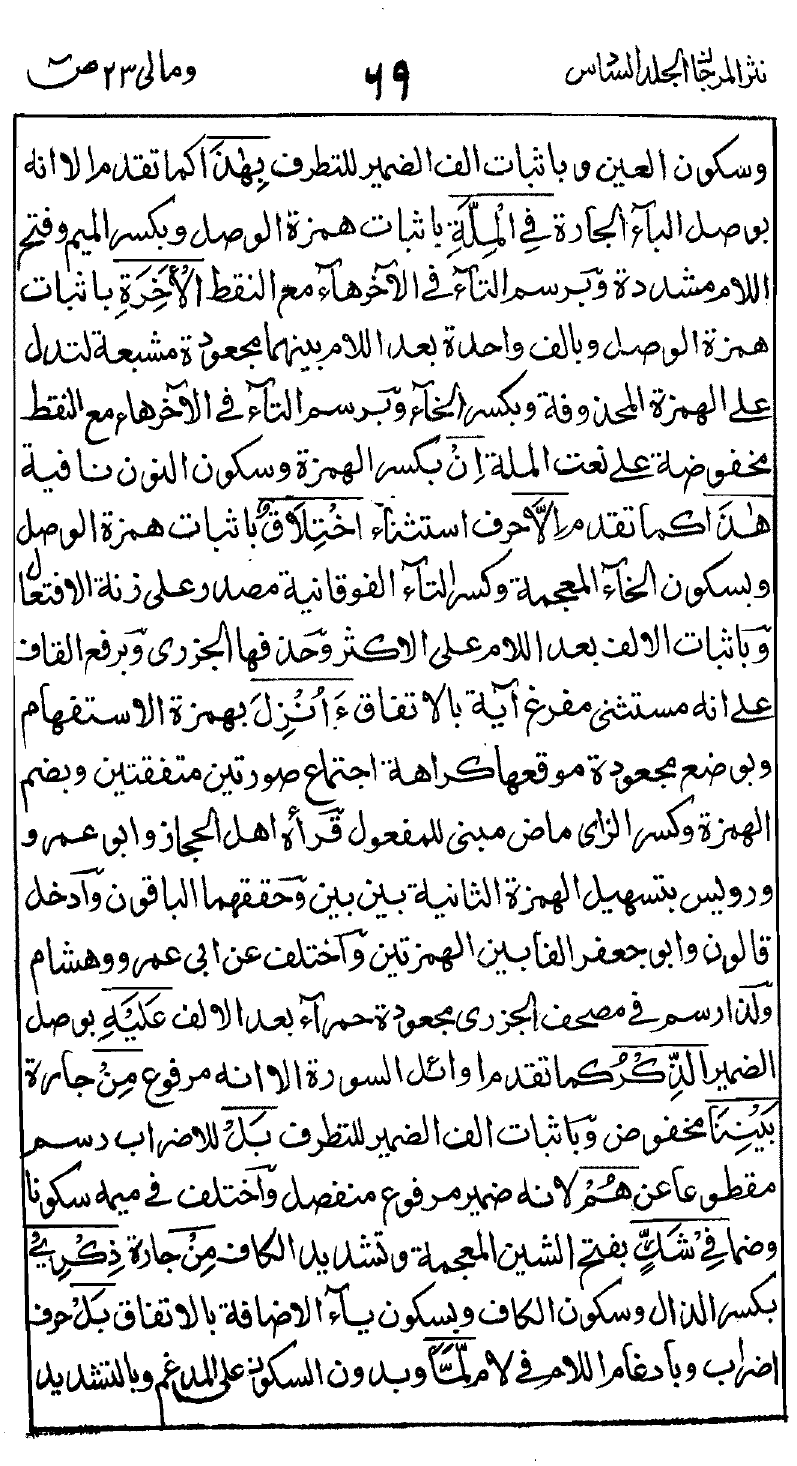 نثر المرجان الجلد السادس
٦٩
ومالى ٢٣ ص
وسكون العين وباثبات الف الضمير للتطرف بِهٰذَا كما تقدم الا انه
بوصل البآء الجارة فِي الْمِلَّةِ باثبات همزة الوصل وبكسر الميم وفتح
اللام مشددة وبرسم التآء فى الآخر هآء مع النقط الْاٰخِرَةِ باثبات
همزة الوصل وبالف واحدة بعد اللام بينهما مجعودة مشبعة لتدل
على الهمزة المحذوفة وبكسر الخآء وبرسم التآء فى الآخر هاء مع النقط
مخفوضة على نعت الملة اِنْ بكسر الهمزة وسكون النون نافية
هٰذَا كما تقدم اِلَّا حرف استثناء اخْتِلَاقٌ باثبات همزة الوصل
وبسكون الخآء المعجمة وكسر التآء الفوقانية مصدر على زنة الافتعال
وباثبات الالف بعد اللام على الاكثر وحذفها الجزرى وبرفع القاف
على انه مستثنى مفرغ آية بالاتفاق ءَاُنْزِلَ بهمزة الاستفهام
وبوضع مجعودة موقعها كراهة اجتماع صورتين متفقتين وبضم
الهمزة وكسر الزاى ماض مبنى للمفعول قرأه اهل الحجاز وابو عمرو
ورويس بتسهيل الهمزة الثانية بين بين وحققهما الباقون وادخل
قالون وابو جعفر الفا بين الهمزتين واختلف عن ابى عمرو وهشام
ولذا رسم فى مصحف الجزرى مجعودة حمرآء بعد الالف عَلَيْهِ بوصل
الضمير الذِّكْرُ كما تقدم اوائل السورة الا انه مرفوع مِنْ جارة
بَيْنِنَا مخفوض وباثبات الف الضمير للتطرف بَلْ للاضراب رسم
مقطوعا عن هُمْ لانه ضمير مرفوع منفصل واختلف فى ميمه سكونا
وضما فِيْ شَكٍّ بفتح الشين المعجمة وتشديد الكاف مِنْ جارة ذِكْرِيْ
بكسر الذال وسكون الكاف وبسكون يآء الاضافة بالاتفاق بَلْ حرف
اضراب وبادغام اللام فى لام لَّمَّا وبدون السكون على المدغم وبالتشديد